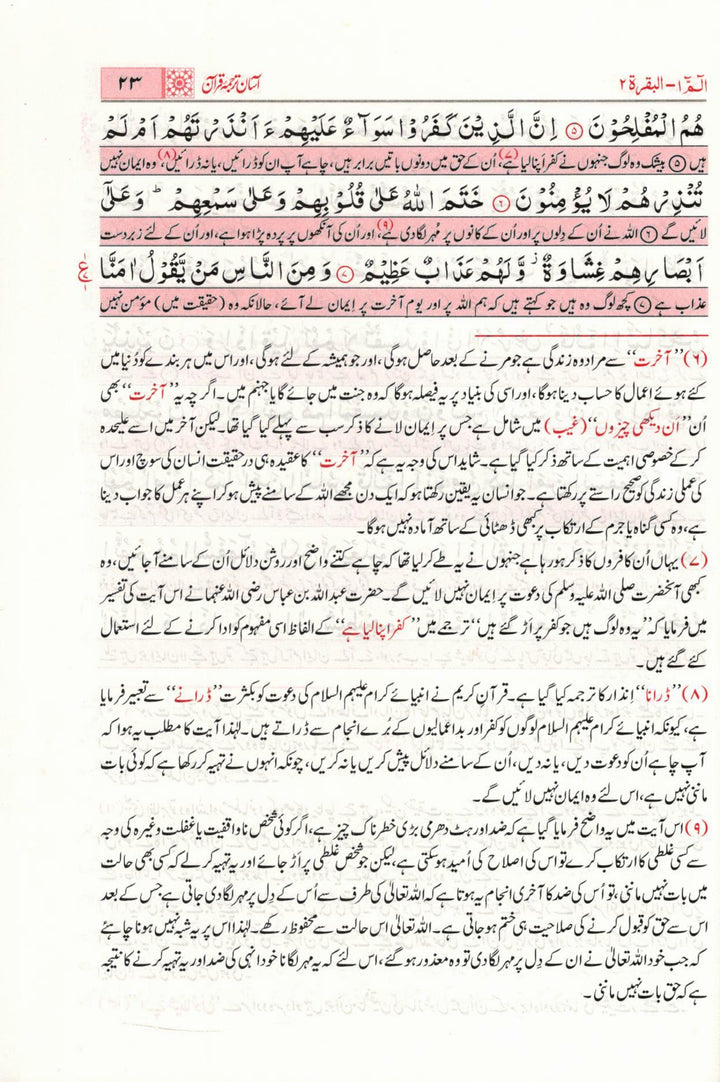 الٓمّٓ ۱ – البقرة ۲ آسان ترجمۂ قرآن ۲۳
هُمُ الْمُفْلِحُوْنَ ۵ اِنَّ الَّذِیْنَ كَفَرُوْا سَوَآءٌ عَلَیْهِمْ ءَاَنْذَرْتَهُمْ اَمْ لَمْ
ہیں ۵ بیشک وہ لوگ جنہوں نے کفر اپنا لیا ہے(۷)، اُن کے حق میں دونوں باتیں برابر ہیں، چاہے آپ ان کو ڈرائیں، یا نہ ڈرائیں(۸)، وہ ایمان نہیں
تُنْذِرْهُمْ لَا یُؤْمِنُوْنَ ۶ خَتَمَ اللهُ عَلٰی قُلُوْبِهِمْ وَعَلٰی سَمْعِهِمْ ؕ وَعَلٰۤی
لائیں گے ۶ اللہ نے اُن کے دِلوں پر اور اُن کے کانوں پر مُہر لگا دی ہے(۹)، اور اُن کی آنکھوں پر پردہ پڑا ہوا ہے، اور اُن کے لئے زبردست
اَبْصَارِهِمْ غِشَاوَةٌ ۫ وَّلَهُمْ عَذَابٌ عَظِیْمٌ ۷ وَمِنَ النَّاسِ مَنْ یَّقُوْلُ اٰمَنَّا ع
عذاب ہے ۷ کچھ لوگ وہ ہیں جو کہتے ہیں کہ ہم اللہ پر اور یومِ آخرت پر اِیمان لے آئے، حالانکہ وہ (حقیقت میں) مؤمن نہیں
(۶) ’’آخرت‘‘ سے مراد وہ زندگی ہے جو مرنے کے بعد حاصل ہوگی، اور جو ہمیشہ کے لئے ہوگی، اور اس میں ہر بندے کو دُنیا میں
کئے ہوئے اعمال کا حساب دینا ہوگا، اور اسی کی بنیاد پر یہ فیصلہ ہوگا کہ وہ جنت میں جائے گا یا جہنم میں۔ اگرچہ یہ ’’آخرت‘‘ بھی
اُن ’’اَن دیکھی چیزوں‘‘ (غیب) میں شامل ہے جس پر اِیمان لانے کا ذکر سب سے پہلے کیا گیا تھا۔ لیکن آخر میں اسے علیحدہ
کرکے خصوصی اہمیت کے ساتھ ذکر کیا گیا ہے۔ شاید اس کی وجہ یہ ہے کہ ’’آخرت‘‘ کا عقیدہ ہی درحقیقت انسان کی سوچ اور اس
کی عملی زندگی کو صحیح راستے پر رکھتا ہے۔ جو انسان یہ یقین رکھتا ہو کہ ایک دن مجھے اللہ کے سامنے پیش ہو کر اپنے ہر عمل کا جواب دینا
ہے، وہ کسی گناہ یا جرم کے ارتکاب پر کبھی ڈھٹائی کے ساتھ آمادہ نہیں ہوگا۔
(۷) یہاں اُن کافروں کا ذکر ہو رہا ہے جنہوں نے یہ طے کر لیا تھا کہ چاہے کتنے واضح اور روشن دلائل اُن کے سامنے آجائیں، وہ
کبھی آنحضرت صلی اللہ علیہ وسلم کی دعوت پر اِیمان نہیں لائیں گے۔ حضرت عبداللہ بن عباس رضی اللہ عنہما نے اس آیت کی تفسیر
میں فرمایا کہ ’’یہ وہ لوگ ہیں جو کفر پر اَڑ گئے ہیں‘‘ ترجمے میں ’’کفر اپنا لیا ہے‘‘ کے الفاظ اسی مفہوم کو ادا کرنے کے لئے استعمال
کئے گئے ہیں۔
(۸) ’’ڈرانا‘‘ اِنذار کا ترجمہ کیا گیا ہے۔ قرآنِ کریم نے انبیائے کرام علیہم السلام کی دعوت کو بکثرت ’’ڈرانے‘‘ سے تعبیر فرمایا
ہے، کیونکہ انبیائے کرام علیہم السلام لوگوں کو کفر اور بداعمالیوں کے بُرے انجام سے ڈراتے ہیں۔ لہٰذا آیت کا مطلب یہ ہوا کہ
آپ چاہے اُن کو دعوت دیں، یا نہ دیں، اُن کے سامنے دلائل پیش کریں یا نہ کریں، چونکہ انہوں نے تہیہ کر رکھا ہے کہ کوئی بات
ماننی نہیں ہے، اس لئے وہ ایمان نہیں لائیں گے۔
(۹) اس آیت میں یہ واضح فرمایا گیا ہے کہ ضد اور ہٹ دھرمی بڑی خطرناک چیز ہے، اگر کوئی شخص ناواقفیت یا غفلت وغیرہ کی وجہ
سے کسی غلطی کا ارتکاب کرے تو اس کی اصلاح کی اُمید ہو سکتی ہے، لیکن جو شخص غلطی پر اَڑ جائے اور یہ تہیہ کر لے کہ کسی بھی حالت
میں بات نہیں ماننی، تو اُس کی ضد کا آخری انجام یہ ہوتا ہے کہ اللہ تعالیٰ کی طرف سے اُس کے دِل پر مہر لگا دی جاتی ہے جس کے بعد
اس سے حق کو قبول کرنے کی صلاحیت ہی ختم ہو جاتی ہے۔ اللہ تعالیٰ اس حالت سے محفوظ رکھے۔ لہٰذا اس پر یہ شبہ نہیں ہونا چاہئے
کہ جب خود اللہ تعالیٰ نے ان کے دِل پر مہر لگا دی تو وہ معذور ہوگئے، اس لئے کہ یہ مہر لگانا خود انہی کی ضد اور یہ تہیہ کرنے کا نتیجہ
ہے کہ حق بات نہیں ماننی۔